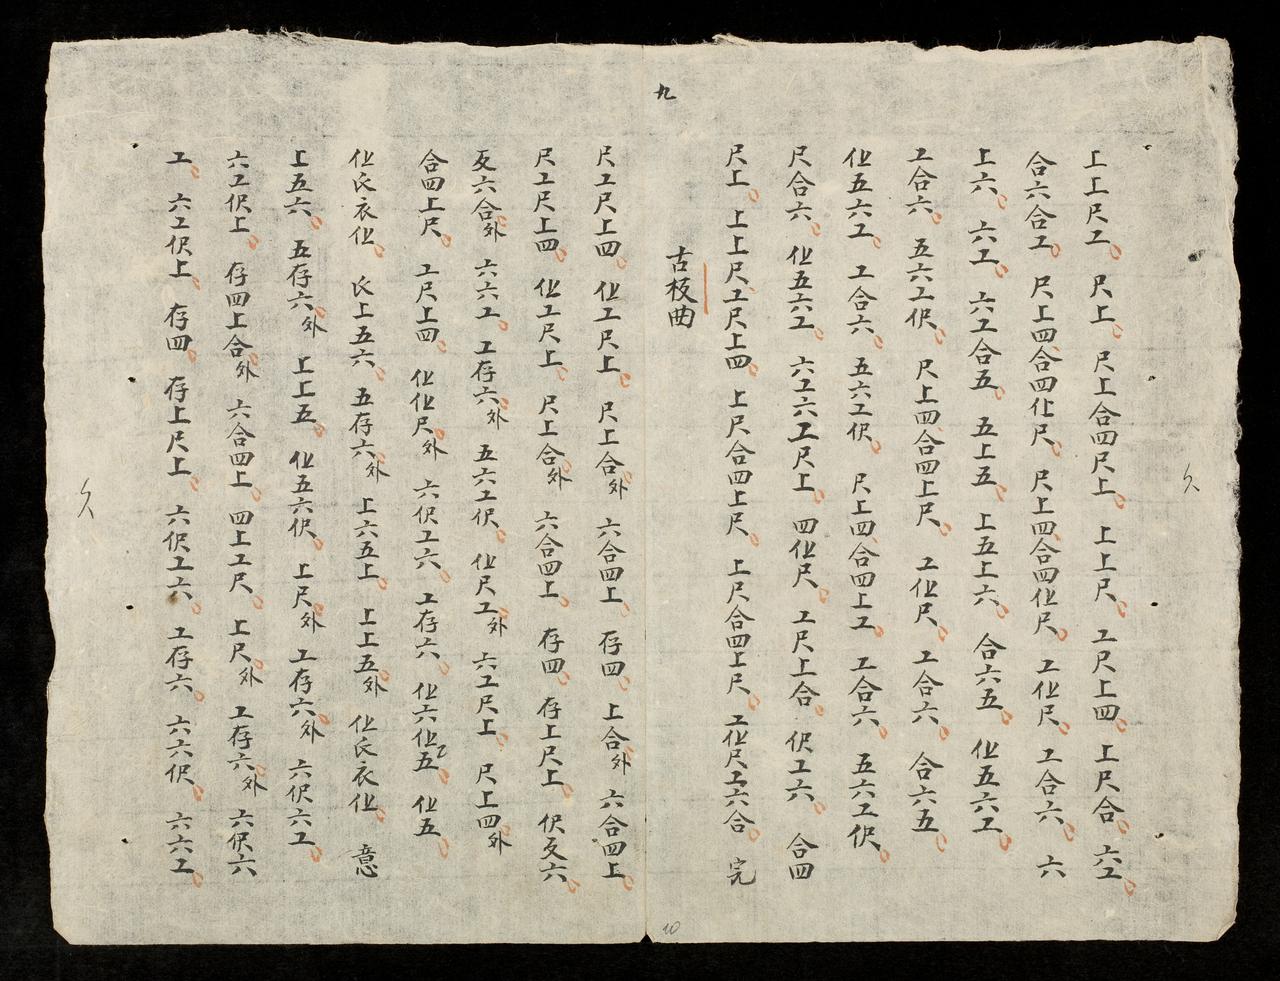 九
上上尺工 尺上 尺上合四尺上 上上尺 工尺上四 上尺合 六工
合六合工 尺上四合四仩尺 尺上四合四仩尺 工仩尺 工合六 六
上六 六工 六工合五 五上五 上五上六 合六五 仩五六工
工合六 五六工伬 尺上四合四上尺 工仩尺 工合六 合六五
仩五六工 工合六 五六工伬 尺上四合四上工 工合六 五六工伬
尺合六 仩五六工 六工六工尺上 四仩尺 工尺上合 伬工六 合四
尺上 上上尺工尺上四 上尺合四上尺 上尺合四上尺 工仩尺工六合 完
古板曲
尺工尺上四 仩工尺上 尺上合外 六合四上 存四 上合外 六合四上
尺工尺上四 仩工尺上 尺上合外 六合四上 存四 存上尺上 伬反六
反六合外 六六工 工存六外 五六工伬 仩尺工外 六工尺上 尺上四外
合四上尺 工尺上四 仩仩尺外 六伬工六 工存六 仩六仩五 仩五
仩氏衣仩 氏上五六 五存六外 上六五上 上上五外 仩氏衣仩 意
上五六 五存六外 上上五 仩五六伬 上尺外 工存六外 六伬六工
六工伬上 存四上合外 六合四上 四上工尺 上尺外 工存六外 六伬六
工 六工伬上 存四 存上尺上 六伬工六 工存六 六六伬 六六工
10